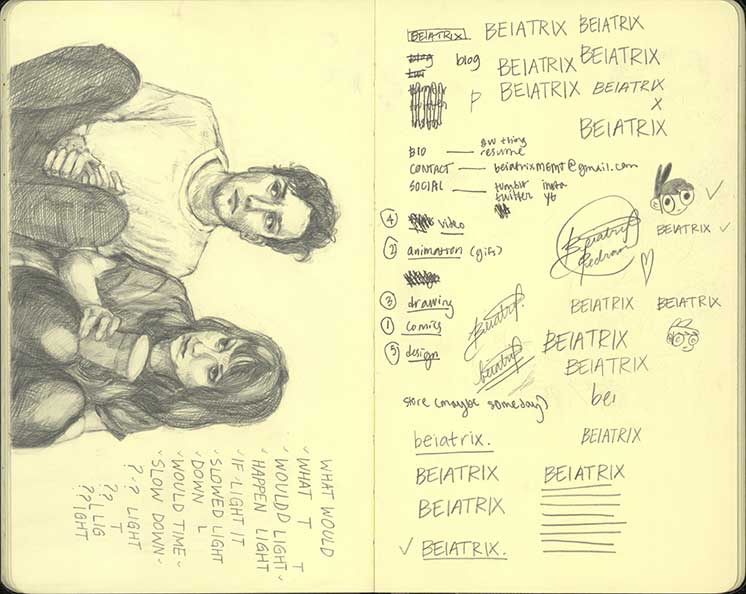 WHAT WOULD
WHAT T T
WOULDD LIGHT
HAPPEN LIGHT
IF LIGHT IT
SLOWED LIGHT
DOWN L
WOULD TIME
SLOW DOWN
? ? LIGHT
?? T
?? L LIG
?? IGHT
BEIATRIX BEIATRIX BEIATRIX
blog BEIATRIX BEIATRIX
p BEIATRIX BEIATRIX
X
BEIATRIX
BIO — resume
CONTACT — beiatrixMGMT@gmail.com
SOCIAL — tumblr insta
twitter yt
④ video
② animation (gifs)
③ drawing
① comics
⑤ design
store (maybe someday)
✓
BEIATRIX ✓
Beiatrix
Pedrasa
BEIATRIX BEIATRIX
Beiatrix
beiatrix
BEIATRIX
BEIATRIX
bei
beiatrix. BEIATRIX
BEIATRIX BEIATRIX
BEIATRIX
✓ BEIATRIX.